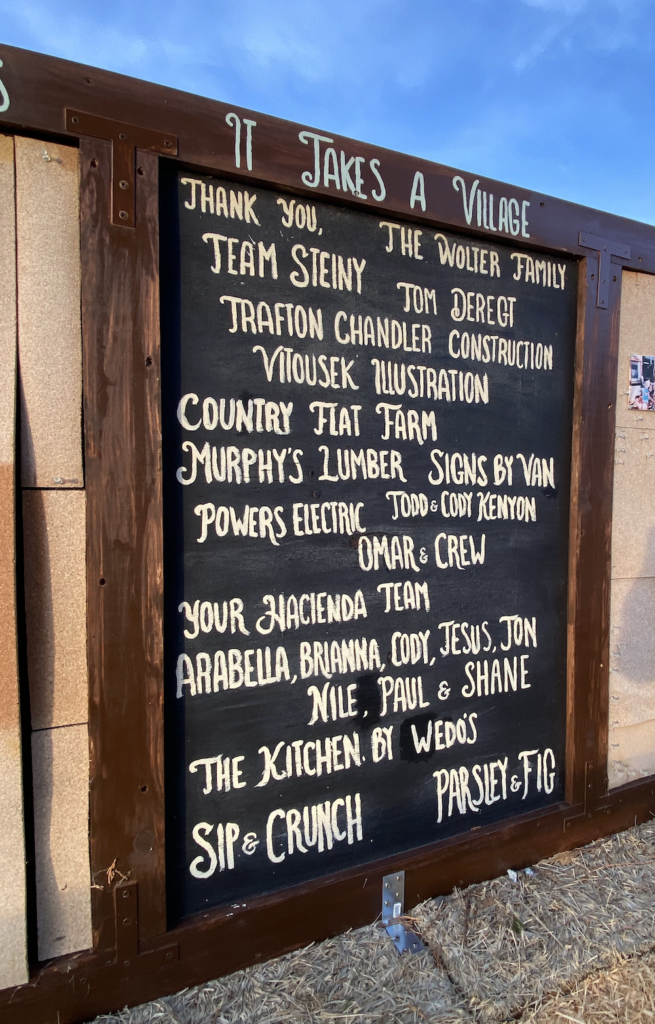 It Takes A Village
Thank you,
The Wolter Family
Team Steiny
Tom Deregt
Trafton Chandler Construction
Vitousek Illustration
Country Flat Farm
Murphy's Lumber Signs by Van
Powers Electric Todd & Cody Kenyon
Omar & Crew
Your Hacienda Team
Arabella, Brianna, Cody, Jesus, Jon
Nile, Paul & Shane
The Kitchen. By Wedo's
Sip & Crunch Parsley & Fig